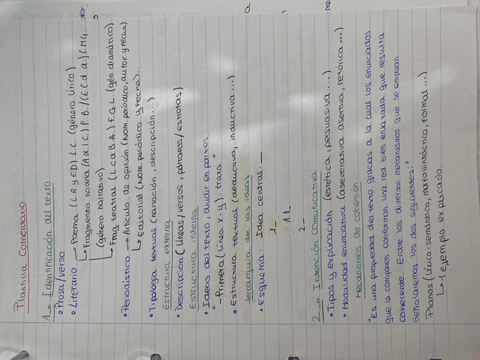 Plantilla Comentario
1→ Identificación del texto
• Prosa/verso
• Literario → Poema (L.R y E.D) L.C (género lírico)
→ Fragmento novela (A.X.I.C) P.B/(E.C.d.a) C.M.G
(género narrativo)
→ Frag teatral (L.C.d.B.A) F.G.L (gén dramático)
• Periodístico → Artículo de opinión (nom. periódico, autor y fecha)
→ Editorial (nom. periódico y fecha).
• Tipología textual (narración, descripción...)
Estructura externa
• Descripción (líneas/versos, párrafos/estrofas)
Estructura interna
• Ideas del texto, dividir en partes.
"Primera (línea x-y) trata"
• Estructura textual (deductiva, inductiva...)
Jerarquía de las ideas
• Esquema: Idea central: —
1-
1.1-
2-
2→ Intención comunicativa
• Tipos y explicación (estética, persuasiva...)
• Modalidad enunciativa (aseverativa asertiva, retórica...)
Mecanismos de cohesión
"Es una propiedad del texto gracias a la cual los enunciados
que lo componen conforman una red bien enlazada que resulta
coherente. Entre los diversos mecanismos que se emplean
señalaremos los dos siguientes:"
Planos (léxico-semántico, morfosintáctico, formal...)
↳ 1 ejemplo explicado